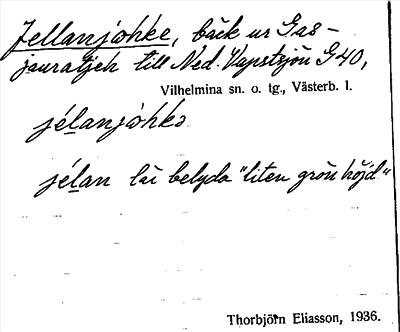 Jellanjohke, bäck ur Gas-
jauratjeh till Ned. Vapstsjön G40,
Vilhelmina sn. o. tg., Västerb. l.
jélanjohko
jélan lär belyda "liten grön höjd"
Thorbjörn Eliasson, 1936.